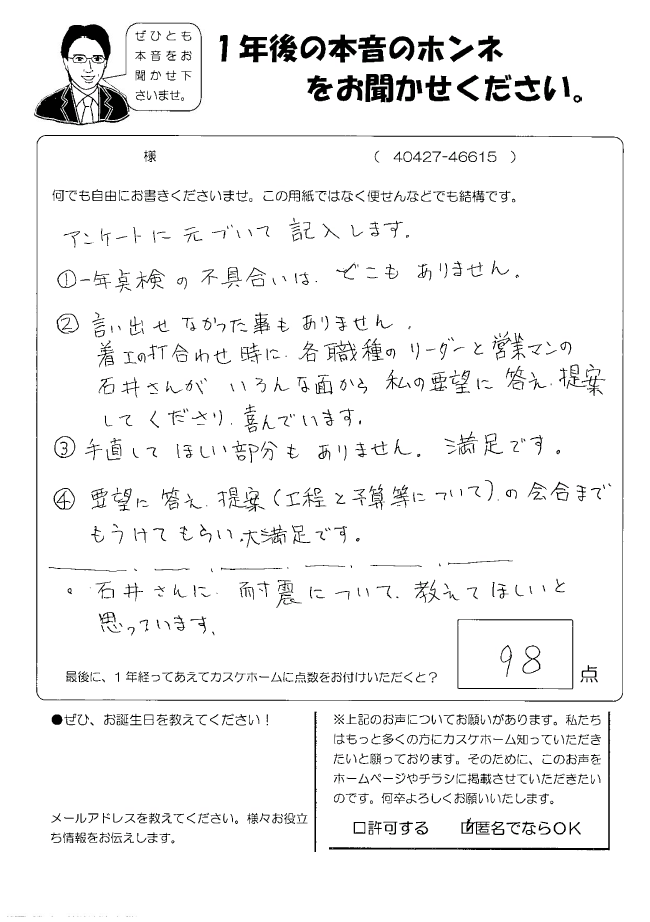 ぜひとも
本音をお
聞かせ下
さいませ。
1年後の本音のホンネ
をお聞かせください。
様 ( 40427-46615 )
何でも自由にお書きくださいませ。この用紙ではなく便せんなどでも結構です。
アンケートに元づいて記入します。
①一年点検の不具合いは、どこもありません。
②言い出せなかった事もありません。
着工の打合わせ時に、各職種のリーダーと営業マンの
石井さんがいろんな面から私の要望に答え、提案
してくださり、喜んでいます。
③手直してほしい部分もありません。満足です。
④要望に答え、提案(工程と予算等について)、の会合まで
もうけてもらい、大満足です。
。石井さんに、耐震について、教えてほしいと
思っています、
最後に、1年経ってあえてカスケホームに点数をお付けいただくと? 98点
●ぜひ、お誕生日を教えてください!
メールアドレスを教えてください。様々お役立
ち情報をお伝えします。
※上記のお声についてお願いがあります。私たち
はもっと多くの方にカスケホーム知っていただき
たいと願っております。そのために、このお声を
ホームページやチラシに掲載させていただきたい
のです。何卒よろしくお願いいたします。
□許可する ☑匿名でならOK